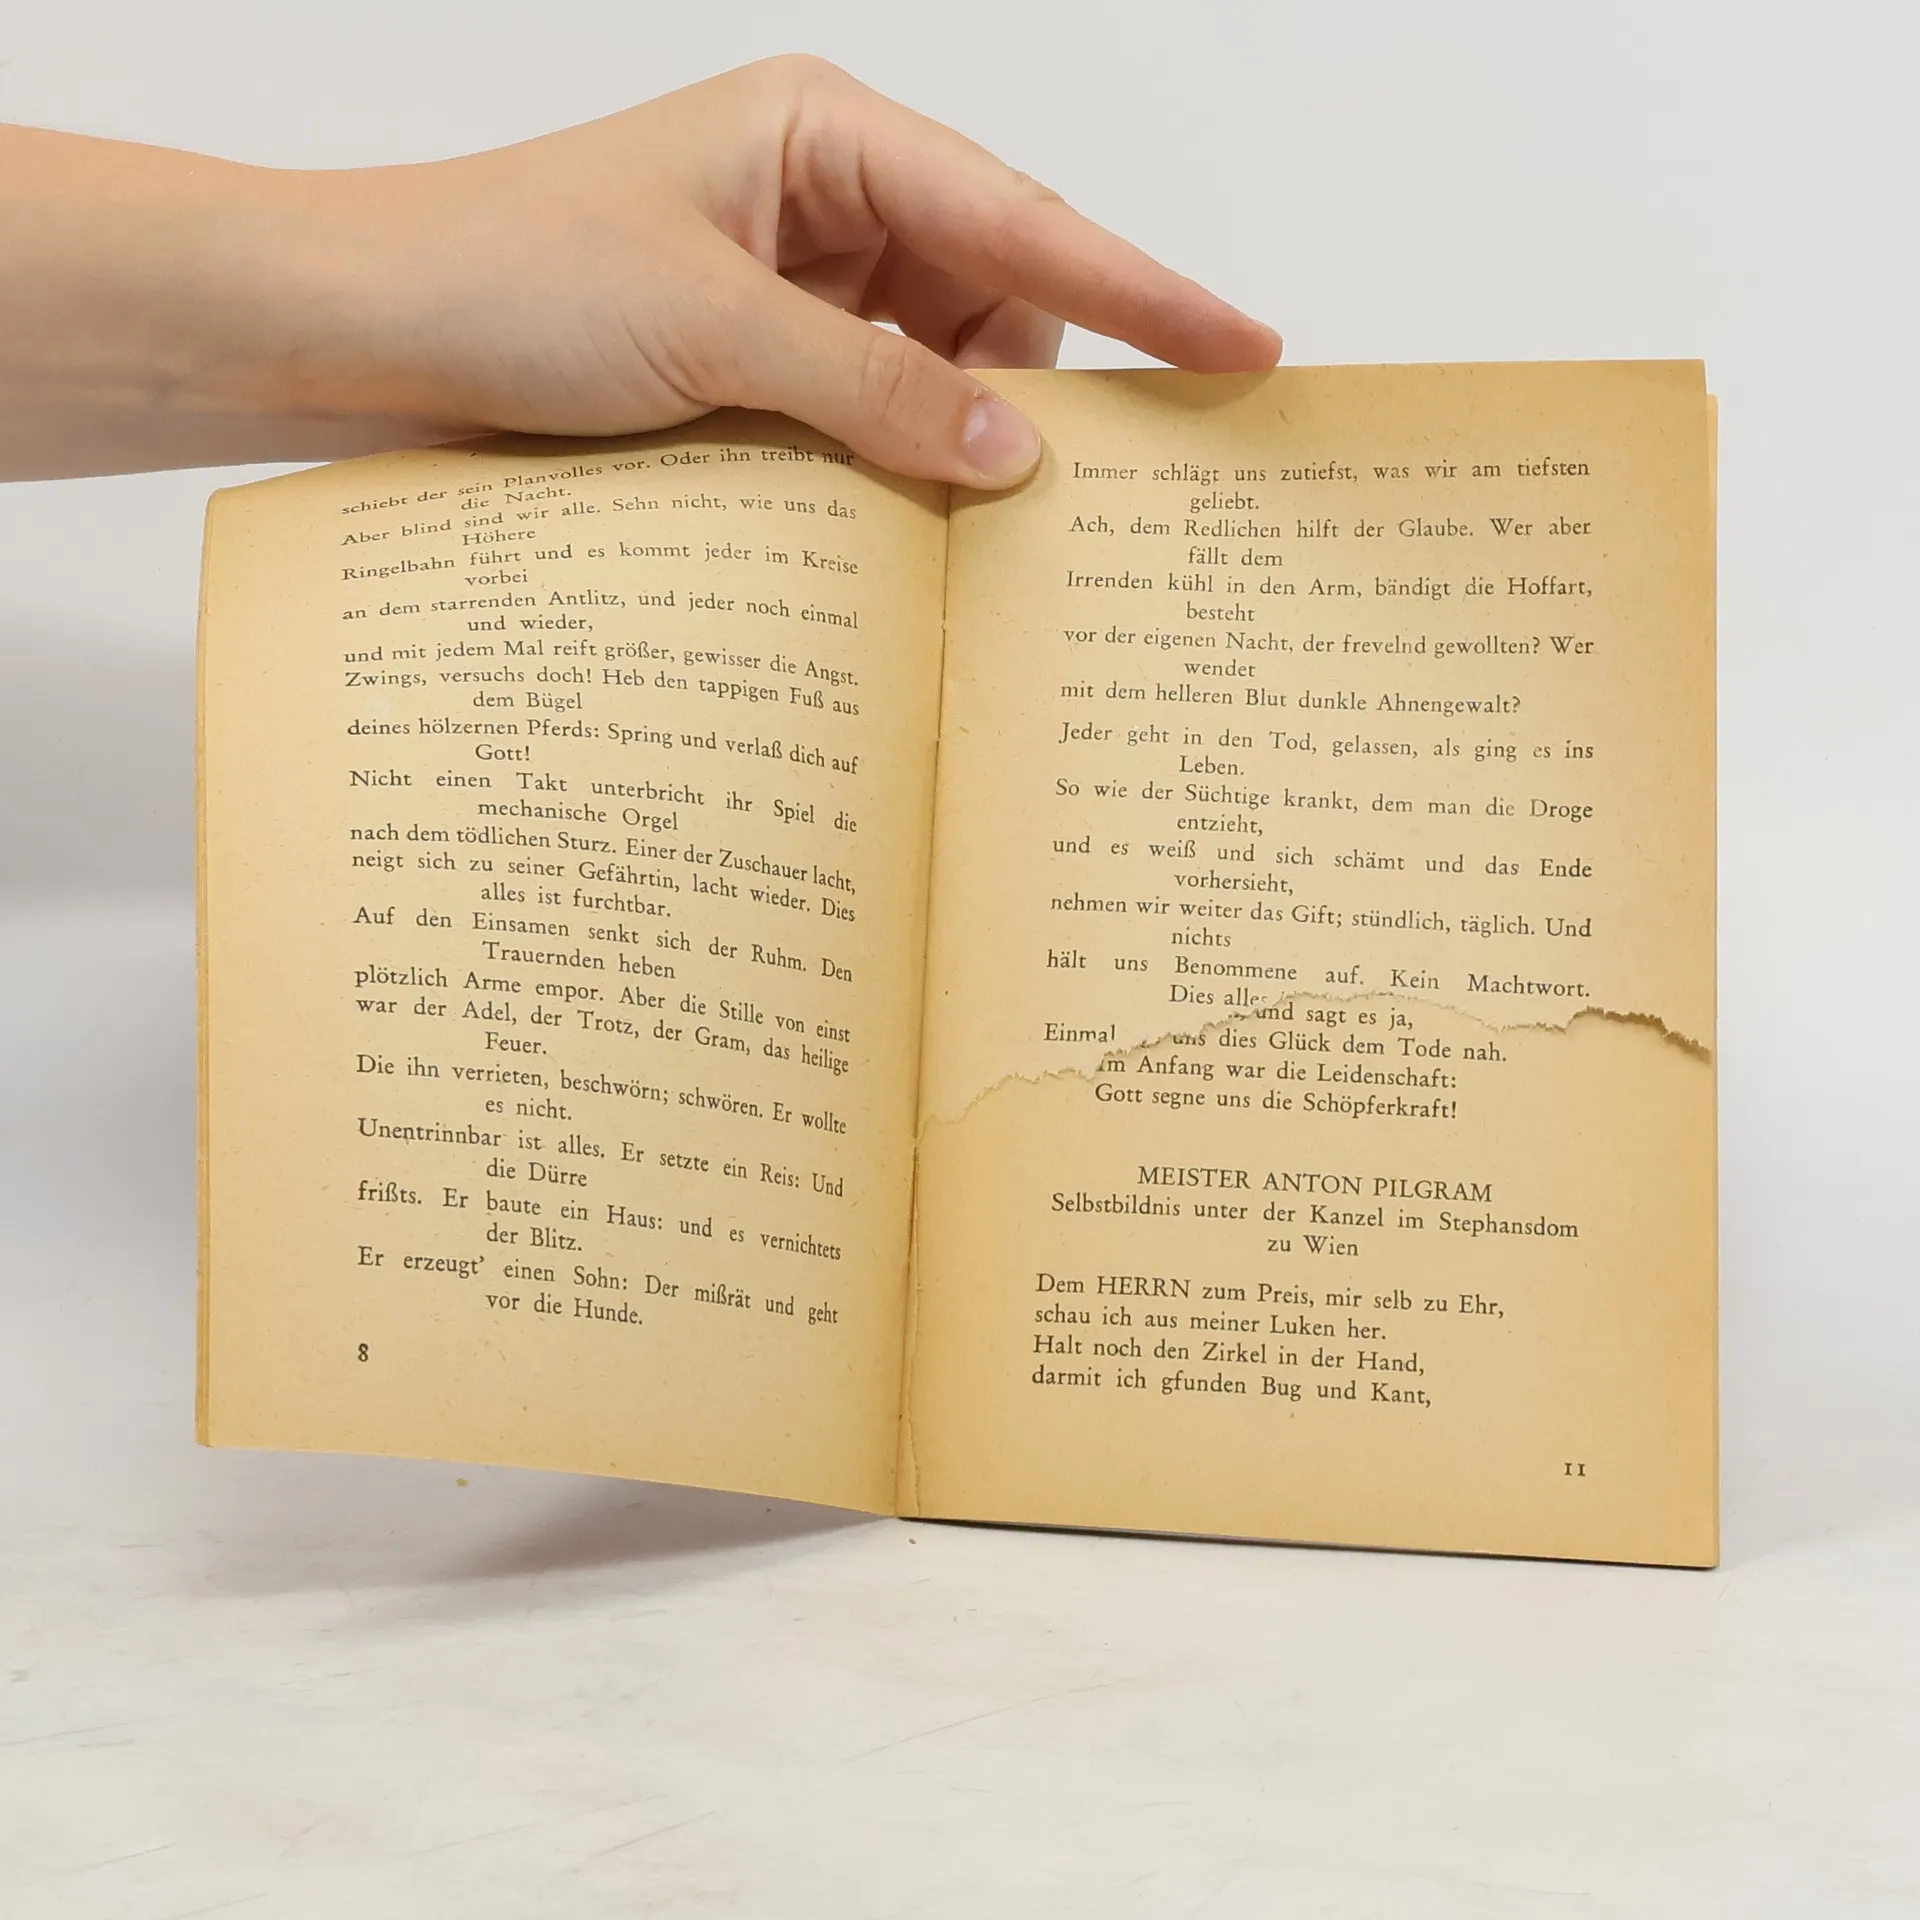 schiebt der sein Planvolles vor. Oder ihn treibt nur
die Nacht.
Aber blind sind wir alle. Sehn nicht, wie uns das
Höhere
Ringelbahn führt und es kommt jeder im Kreise
vorbei
an dem starrenden Antlitz, und jeder noch einmal
und wieder,
und mit jedem Mal reift größer, gewisser die Angst.
Zwings, versuchs doch! Heb den tappigen Fuß aus
dem Bügel
deines hölzernen Pferds: Spring und verlaß dich auf
Gott!
Nicht einen Takt unterbricht ihr Spiel die
mechanische Orgel
nach dem tödlichen Sturz. Einer der Zuschauer lacht,
neigt sich zu seiner Gefährtin, lacht wieder. Dies
alles ist furchtbar.
Auf den Einsamen senkt sich der Ruhm. Den
Trauernden heben
plötzlich Arme empor. Aber die Stille von einst
war der Adel, der Trotz, der Gram, das heilige
Feuer.
Die ihn verrieten, beschwörn; schwören. Er wollte
es nicht.
Unentrinnbar ist alles. Er setzte ein Reis: Und
die Dürre
frißts. Er baute ein Haus: und es vernichtets
der Blitz.
Er erzeugt' einen Sohn: Der mißrät und geht
vor die Hunde.
8
Immer schlägt uns zutiefst, was wir am tiefsten
geliebt.
Ach, dem Redlichen hilft der Glaube. Wer aber
fällt dem
Irrenden kühl in den Arm, bändigt die Hoffart,
besteht
vor der eigenen Nacht, der frevelnd gewollten? Wer
wendet
mit dem helleren Blut dunkle Ahnengewalt?
Jeder geht in den Tod, gelassen, als ging es ins
Leben.
So wie der Süchtige krankt, dem man die Droge
entzieht,
und es weiß und sich schämt und das Ende
vorhersieht,
nehmen wir weiter das Gift; stündlich, täglich. Und
nichts
hält uns Benommene auf. Kein Machtwort.
Dies alles
und sagt es ja,
Einmal uns dies Glück dem Tode nah.
Im Anfang war die Leidenschaft:
Gott segne uns die Schöpferkraft!
MEISTER ANTON PILGRAM
Selbstbildnis unter der Kanzel im Stephansdom
zu Wien
Dem HERRN zum Preis, mir selb zu Ehr,
schau ich aus meiner Luken her.
Halt noch den Zirkel in der Hand,
darmit ich gfunden Bug und Kant,
11